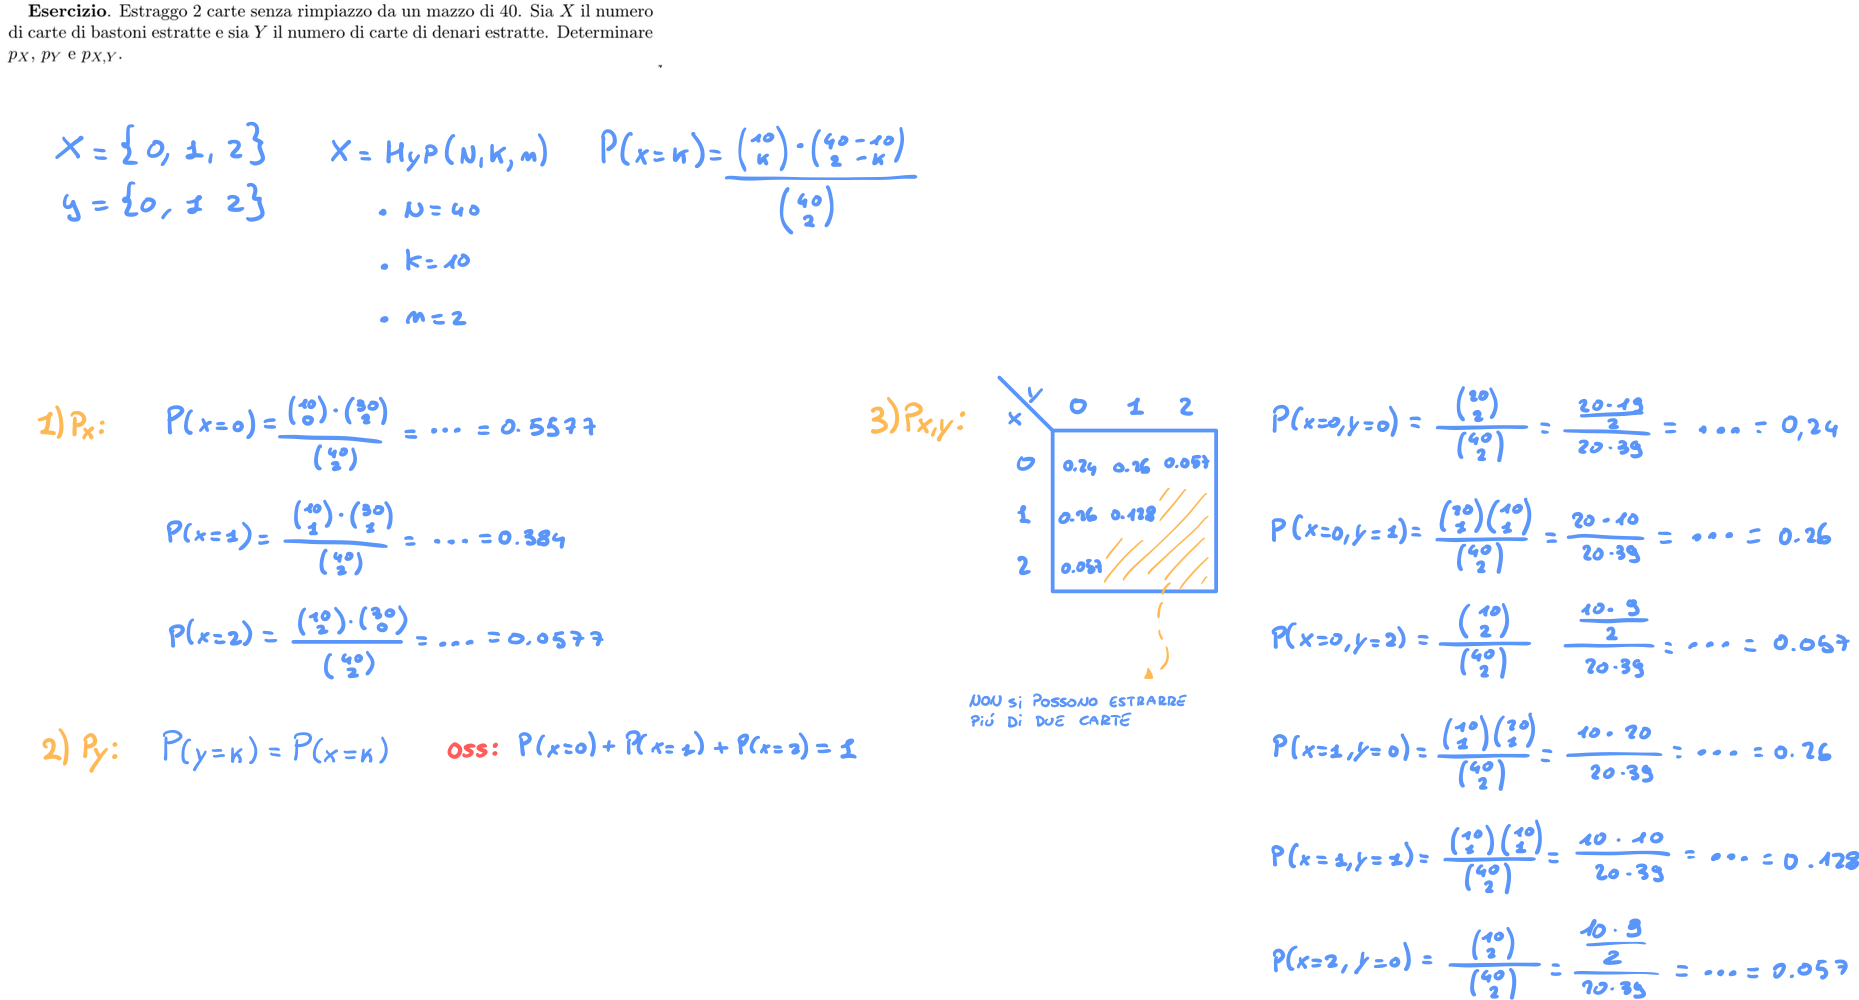 Esercizio. Estraggo 2 carte senza rimpiazzo da un mazzo di 40. Sia X il numero
di carte di bastoni estratte e sia Y il numero di carte di denari estratte. Determinare
p_X, p_Y e p_{X,Y}.
X = {0, 1, 2}
y = {0, 1 2}
X = HyP(N,K,n)
• N = 40
• K = 10
• n = 2
P(x=k) = (10 k) · (40-10 2-k) / (40 2)
1) Px:
P(x=0) = (10 0) · (30 2) / (40 2) = ... = 0.5577
P(x=1) = (10 1) · (30 1) / (40 2) = ... = 0.384
P(x=2) = (10 2) · (30 0) / (40 2) = ... = 0.0577
2) Py: P(y=k) = P(x=k)
oss: P(x=0) + P(x=1) + P(x=2) = 1
3) Px,y:
x y 0 1 2
0 0.24 0.26 0.057
1 0.26 0.128
2 0.057
NON Si POSSONO ESTRARRE
PIÚ Di DUE CARTE
P(x=0,y=0) = (20 2) / (40 2) = (20·19 / 2) / 20·39 = ... = 0,24
P(x=0,y=1) = (20 1)(10 1) / (40 2) = 20·10 / 20·39 = ... = 0.26
P(x=0,y=2) = (10 2) / (40 2) (10·9 / 2) / 20·39 = ... = 0.057
P(x=1,y=0) = (10 1)(20 1) / (40 2) = 10·20 / 20·39 = ... = 0.26
P(x=1,y=1) = (10 1)(10 1) / (40 2) = 10·10 / 20·39 = ... = 0.128
P(x=2,y=0) = (10 2) / (40 2) = (10·9 / 2) / 20·39 = ... = 0.057